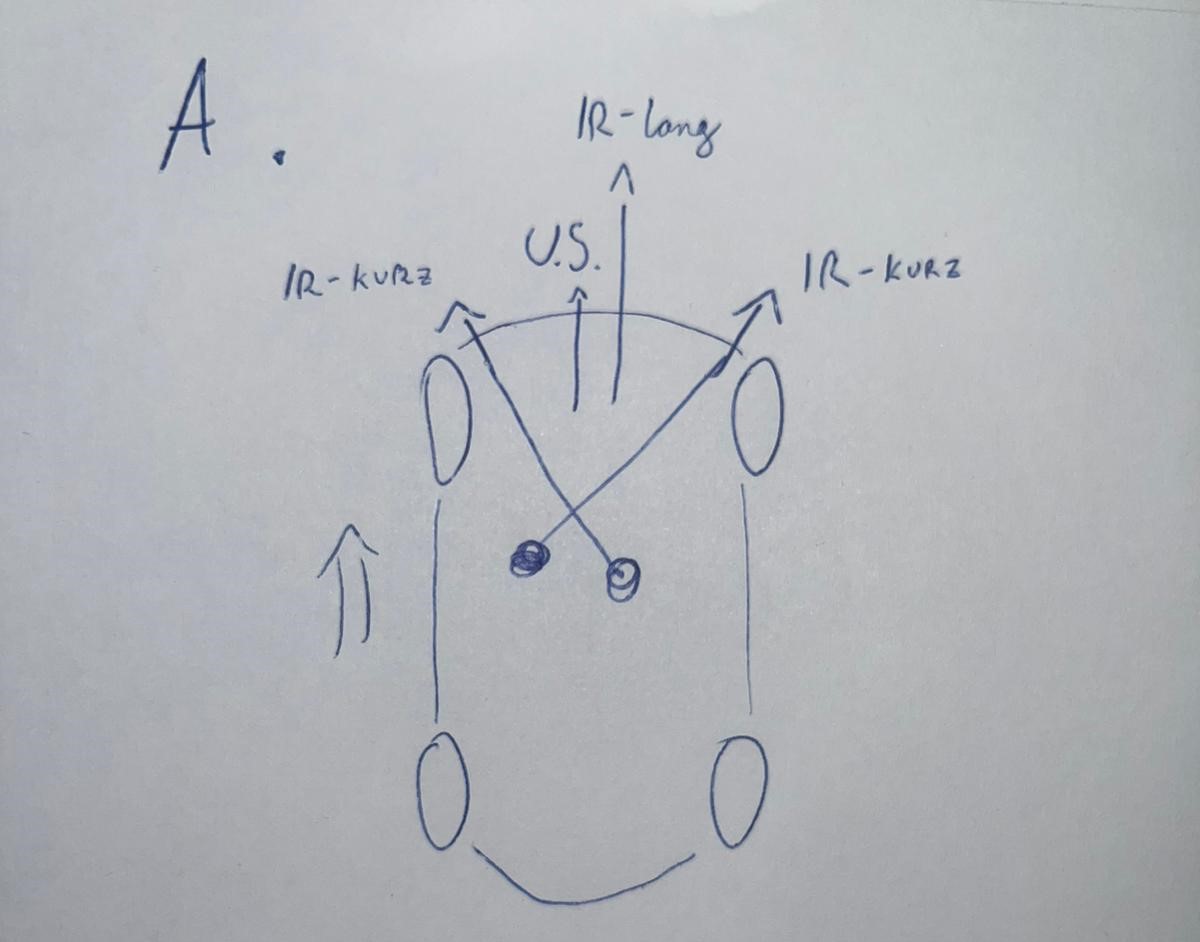 A.
IR-lang
U.S.
IR-KURZ
IR-KURZ